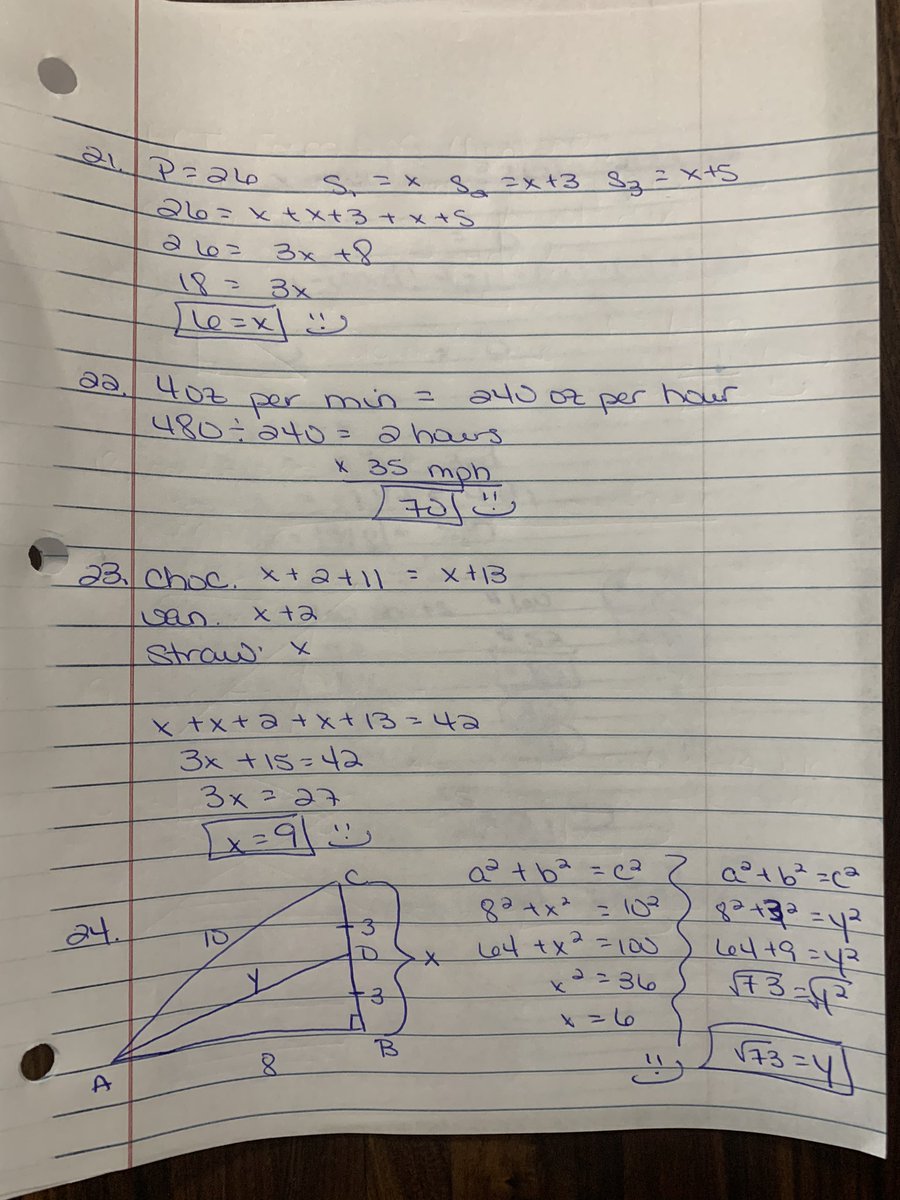 21. P=26 S₁ = x S₂ = x+3 S₃ = x+5
26 = x + x+3 + x+5
26 = 3x +8
18 = 3x
6=x
22. 4oz per min = 240 oz per hour
480 ÷ 240 = 2 hours
x 35 mph
70
23. Choc. x+2+11 = x+13
van. x+2
Straw. x
x +x+2 +x+13 = 42
3x +15=42
3x = 27
x=9
24.
C
10
3
D
x
y
3
B
A
8
a² + b² = c²
8² + x² = 10²
64 + x² = 100
x² = 36
x = 6
a² + b² = c²
8² + 3² = y²
64+9 = y²
√73 = √y²
√73 = y